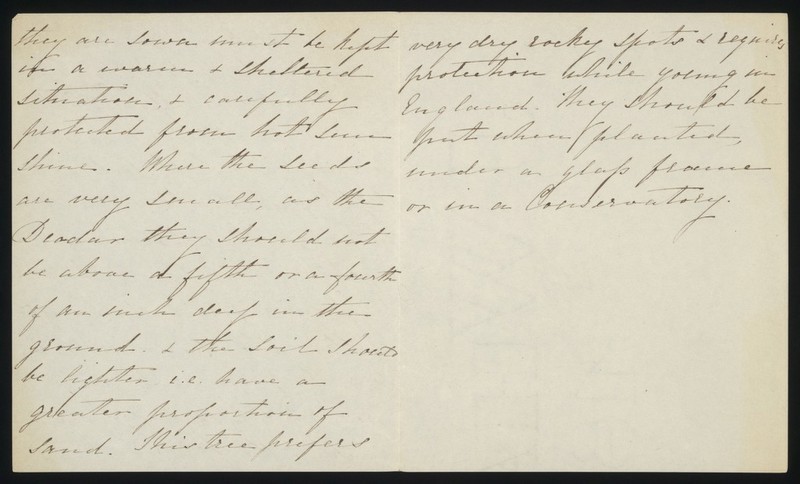 they are sown must be kept
in a warm & sheltered
situation, & carefully
protected from hot sun
shine. Where the seeds
are very small, as the
Deodar they should not
be above a fifth or a fourth
of an inch deep in the
ground. & the soil should
be lighter i.e. have a
greater proportion of
sand. This tree prefers
very dry rocky spots & requires
protection while young in
England. They should be
put when planted,
under a glass frame
or in a Conservatory.